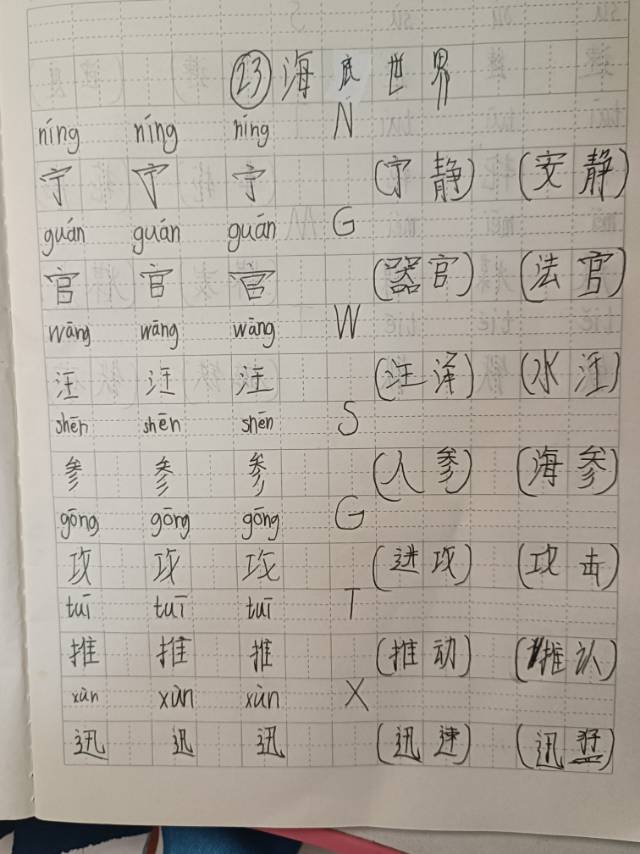 ㉓海底世界
níng níng níng N
宁 宁 宁 (宁静) (安静)
guán guán guán G
官 官 官 (器官) (法官)
wāng wāng wāng W
汪 汪 汪 (汪泽) (水汪)
shēn shēn shēn S
参 参 参 (人参) (海参)
gōng gōng gōng G
攻 攻 攻 (进攻) (攻击)
tuī tuī tuī T
推 推 推 (推动) (推认)
xùn xùn xùn X
迅 迅 迅 (迅速) (迅猛)